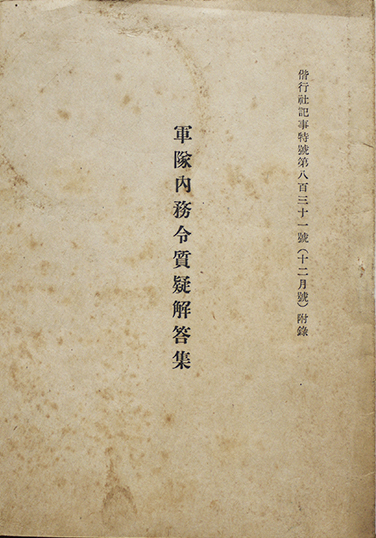 偕行社記事特號第八百三十一號(十二月號)附錄
軍隊內務令質疑解答集